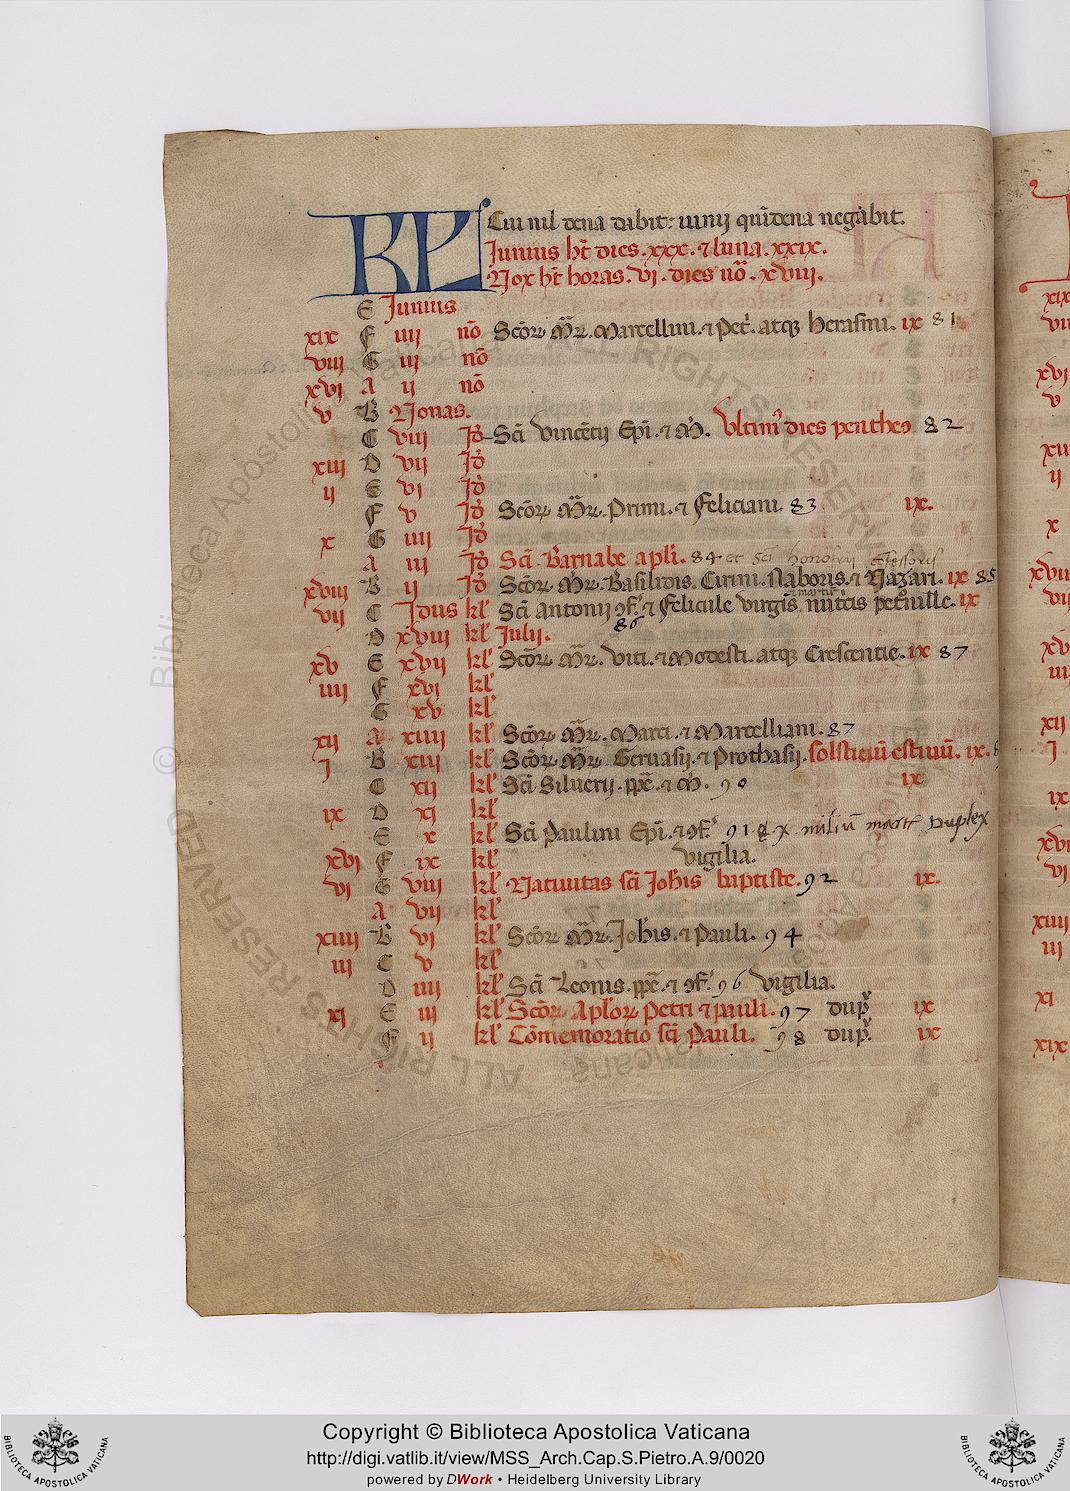 KL Cui nil dena dabit: iunij quīdena negabit.
Junius ht dies .xxx. ⁊ luna .xxix.
Nox ht horas .vi. dies uo .xviij.
E Junius
xix F iiij nō Scōꝝ Mꝝ. Marcellini. ⁊ Pet. atqꝫ herasmi. ix 81
viij G iij nō
xvi A ij nō
v B Nonas.
C viij Jd Sci vincētij Epi. ⁊ M. Vltim9 dies pentheco 82
xiij D vij Jd
ij E vi Jd
F v Jd Scōꝝ Mꝝ. Primi. ⁊ Feliciani. 83 ix.
x G iiij Jd
A iij Jd Sci Barnabe apli. 84 et sci honofrij
xviij B ij Jd Scōꝝ Mꝝ. Basilidis. Cirini. Naboris. ⁊ Nazari. ix 85
vij C Jdus kl Sci Antonij ↄf. ⁊ Felicule virgis nutcis petronille. ix
86
D xviij kl Julij.
xv E xvij kl Scōꝝ Mꝝ. Viti. ⁊ Modesti. atqꝫ Crescentie. ix 87
iiij F xvi kl
G xv kl
xij A xiiij kl Scōꝝ Mꝝ. Marci. ⁊ Marcelliani. 87
j B xiij kl Scōꝝ Mꝝ. Geruasij. ⁊ Prothasij. solsticiū estiuū. ix.
C xij kl Sci Siluerij. ppe. ⁊ M. 90 ix
ix D xi kl
E x kl Sci Paulini Epi. ⁊ ↄf. 91 & x miliū Duplex
xvi F ix kl vigilia.
vi G viij kl Natiuitas sci Johis baptiste. 92 ix.
A vij kl
xiiij B vi kl Scōꝝ Mꝝ. Johis. ⁊ Pauli. 94
iij C v kl
D iiij kl Sci Leonis. ppe. ⁊ ↄf. 96 vigilia.
xi E iij kl Scōꝝ Aploꝝ Petri ⁊ pauli. 97 dup. ix
F ij kl Cōmemoratio sci Pauli. 98 dup. ix
Copyright © Biblioteca Apostolica Vaticana
http://digi.vatlib.it/view/MSS_Arch.Cap.S.Pietro.A.9/0020
powered by DWork • Heidelberg University Library
BIBLIOTECA APOSTOLICA VATICANA
BIBLIOTECA APOSTOLICA VATICANA